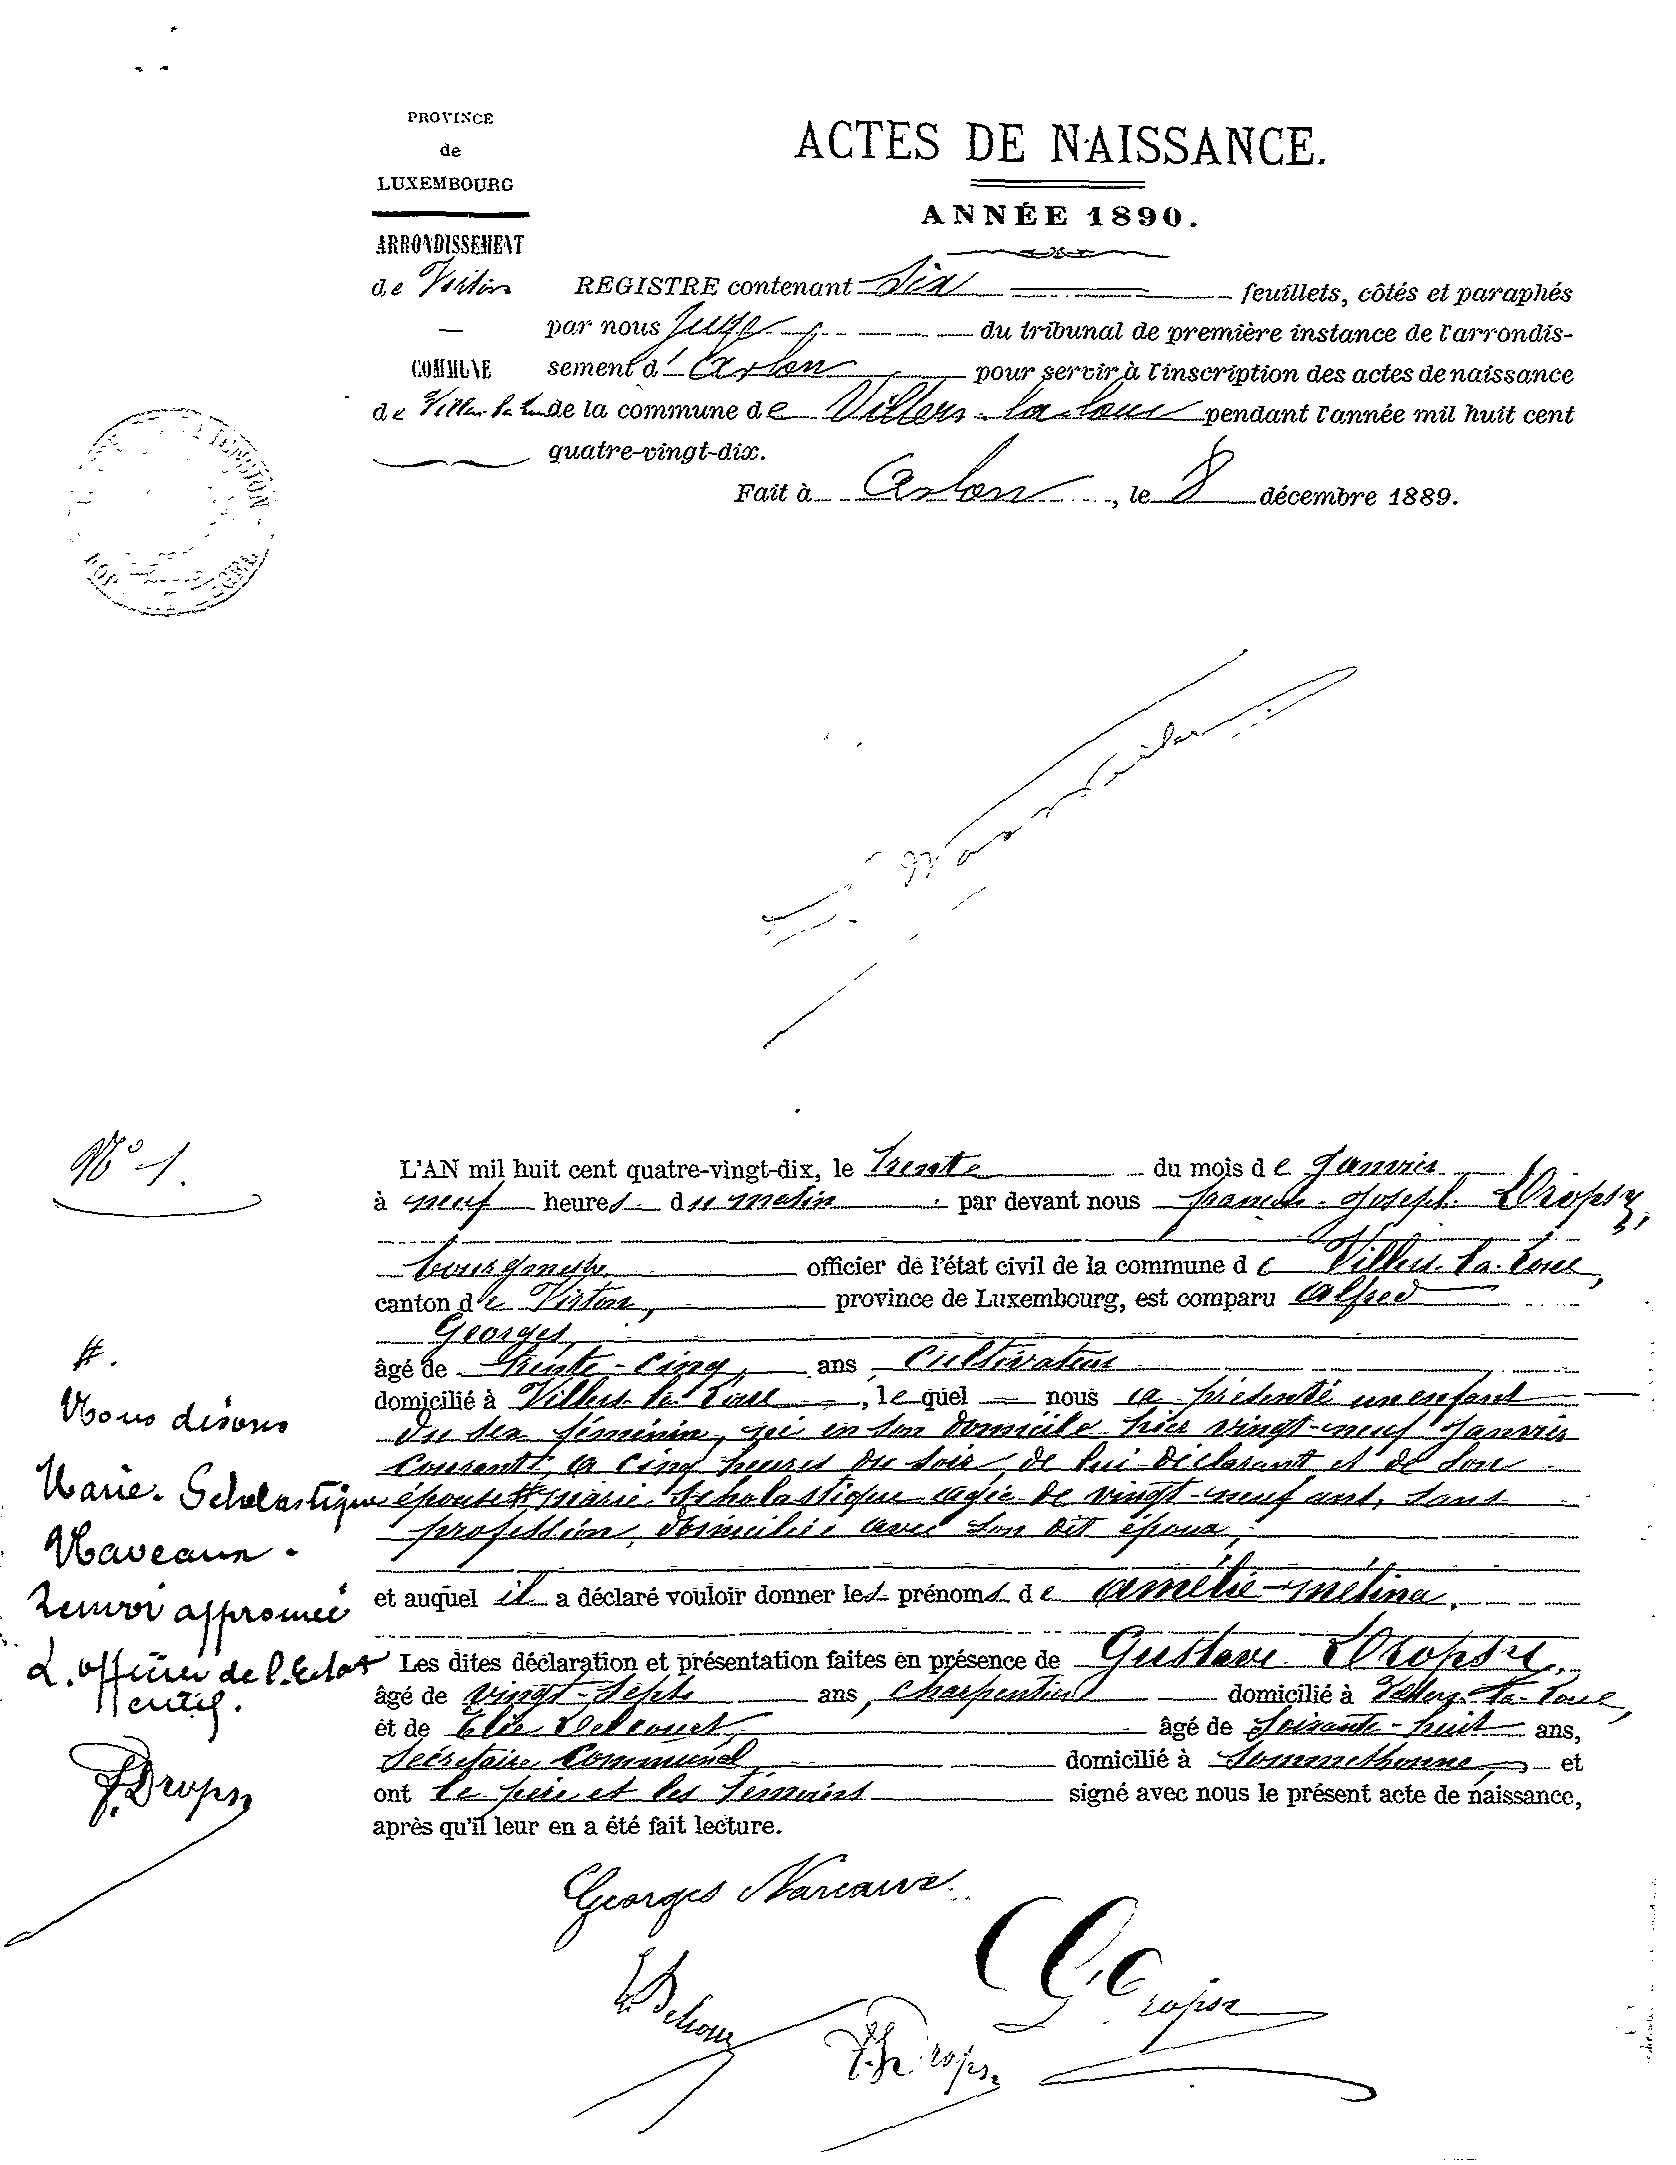 PROVINCE
de
LUXEMBOURG
ARRONDISSEMENT
de Virton
COMMUNE
de Villers-la-Loue
ACTES DE NAISSANCE.
ANNÉE 1890.
REGISTRE contenant Six feuillets, côtés et paraphés
par nous Juge du tribunal de première instance de l'arrondis-
sement d'Arlon pour servir à l'inscription des actes de naissance
de la commune de Villers-la-Loue pendant l'année mil huit cent
quatre-vingt-dix.
Fait à Arlon, le 8 décembre 1889.
N° 1.
L'AN mil huit cent quatre-vingt-dix, le trente du mois de Janvier
à neuf heures du matin par devant nous françois-Joseph Dropsy,
bourgmestre officier de l'état civil de la commune de Villers-la-Loue,
canton de Virton, province de Luxembourg, est comparu Alfred
Georges,
âgé de trente-cinq, ans, cultivateur
domicilié à Villers-la-Loue, lequel nous a présenté un enfant
du sex féminin, né en son domicile hier vingt-neuf Janvier
courant, à cinq heures du soir, de lui déclarant et de son
épouse # marie Scholastique agée de vingt-neuf ans, sans
profession, domiciliée avec son dit époux,
et auquel il a déclaré vouloir donner les prénoms de amélie-mélina.
Les dites déclaration et présentation faites en présence de Gustave Dropsy,
âgé de vingt-sept ans, charpentier domicilié à Villers-la-Loue,
et de Elie Delcourt, âgé de soixante-huit ans,
Secrétaire Communal domicilié à Sommethonne, et
ont le père et les témoins signé avec nous le présent acte de naissance,
après qu'il leur en a été fait lecture.
#.
Nous disons
Marie-Scholastique
Naveaux.
Renvoi approuvé
L'officier de l'Etat
Civil.
F. Dropsy
Georges Naveaux.
G Dropsy
F. J. Dropsy